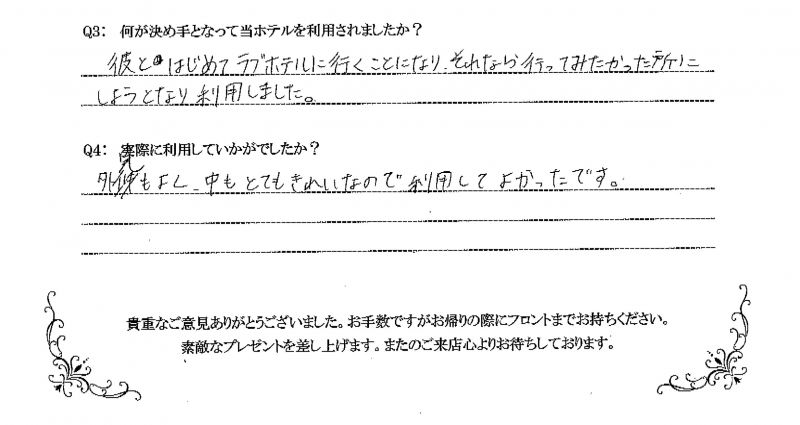 Q3： 何が決め手となって当ホテルを利用されましたか？
彼とはじめてラブホテルに行くことになり、それなら行ってみたかった所に
しようとなり利用しました。
Q4： 実際に利用していかがでしたか？
外見もよく、中もとてもきれいなので利用してよかったです。
貴重なご意見ありがとうございました。お手数ですがお帰りの際にフロントまでお持ちください。
素敵なプレゼントを差し上げます。またのご来店心よりお待ちしております。